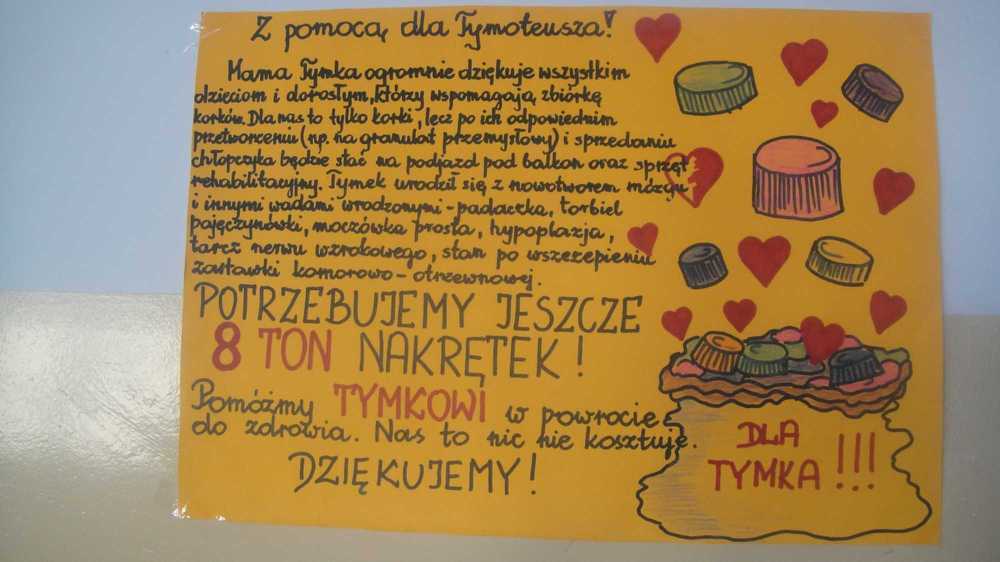 Z pomocą dla Tymoteusza!
Mama Tymka ogromnie dziękuje wszystkim
dzieciom i dorosłym, którzy wspomagają zbiórkę
korków. Dla nas to tylko korki, lecz po ich odpowiednim
przetworzeniu (np. na granulat przemysłowy) i sprzedaniu
chłopczyka będzie stać na podjazd pod balkon oraz sprzęt
rehabilitacyjny. Tymek urodził się z nowotworem mózgu
i innymi wadami wrodzonymi - padaczka, torbiel
pajęczynówki, moczówka prosta, hypoplazja,
tarcz nerwu wzrokowego, stan po wszczepieniu
zastawki komorowo - otrzewnowej.
POTRZEBUJEMY JESZCZE
8 TON NAKRĘTEK!
Pomóżmy TYMKOWI w powrocie
do zdrowia. Nas to nic nie kosztuje.
DZIĘKUJEMY!
DLA
TYMKA!!!